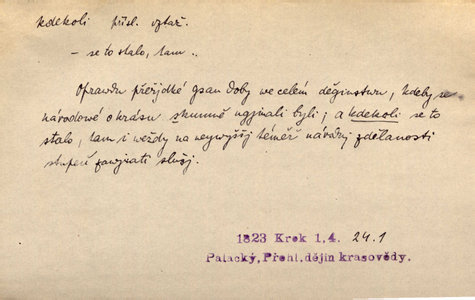 kdekoli přísl. vztaž.
– se to stalo, tam..
Opravdu přeřjdké gsau doby we celém děginstwu, kdeby se
národowé o krásu skumně ugjmali byli; a kdekoli se to
stalo, tam i wždy na neywyššj téměř národnj zdělanosti
stupeň powýšiti slušj.
1823 Krok 1,4. 24.1
Palacký, Přehl. dějin krasovědy.